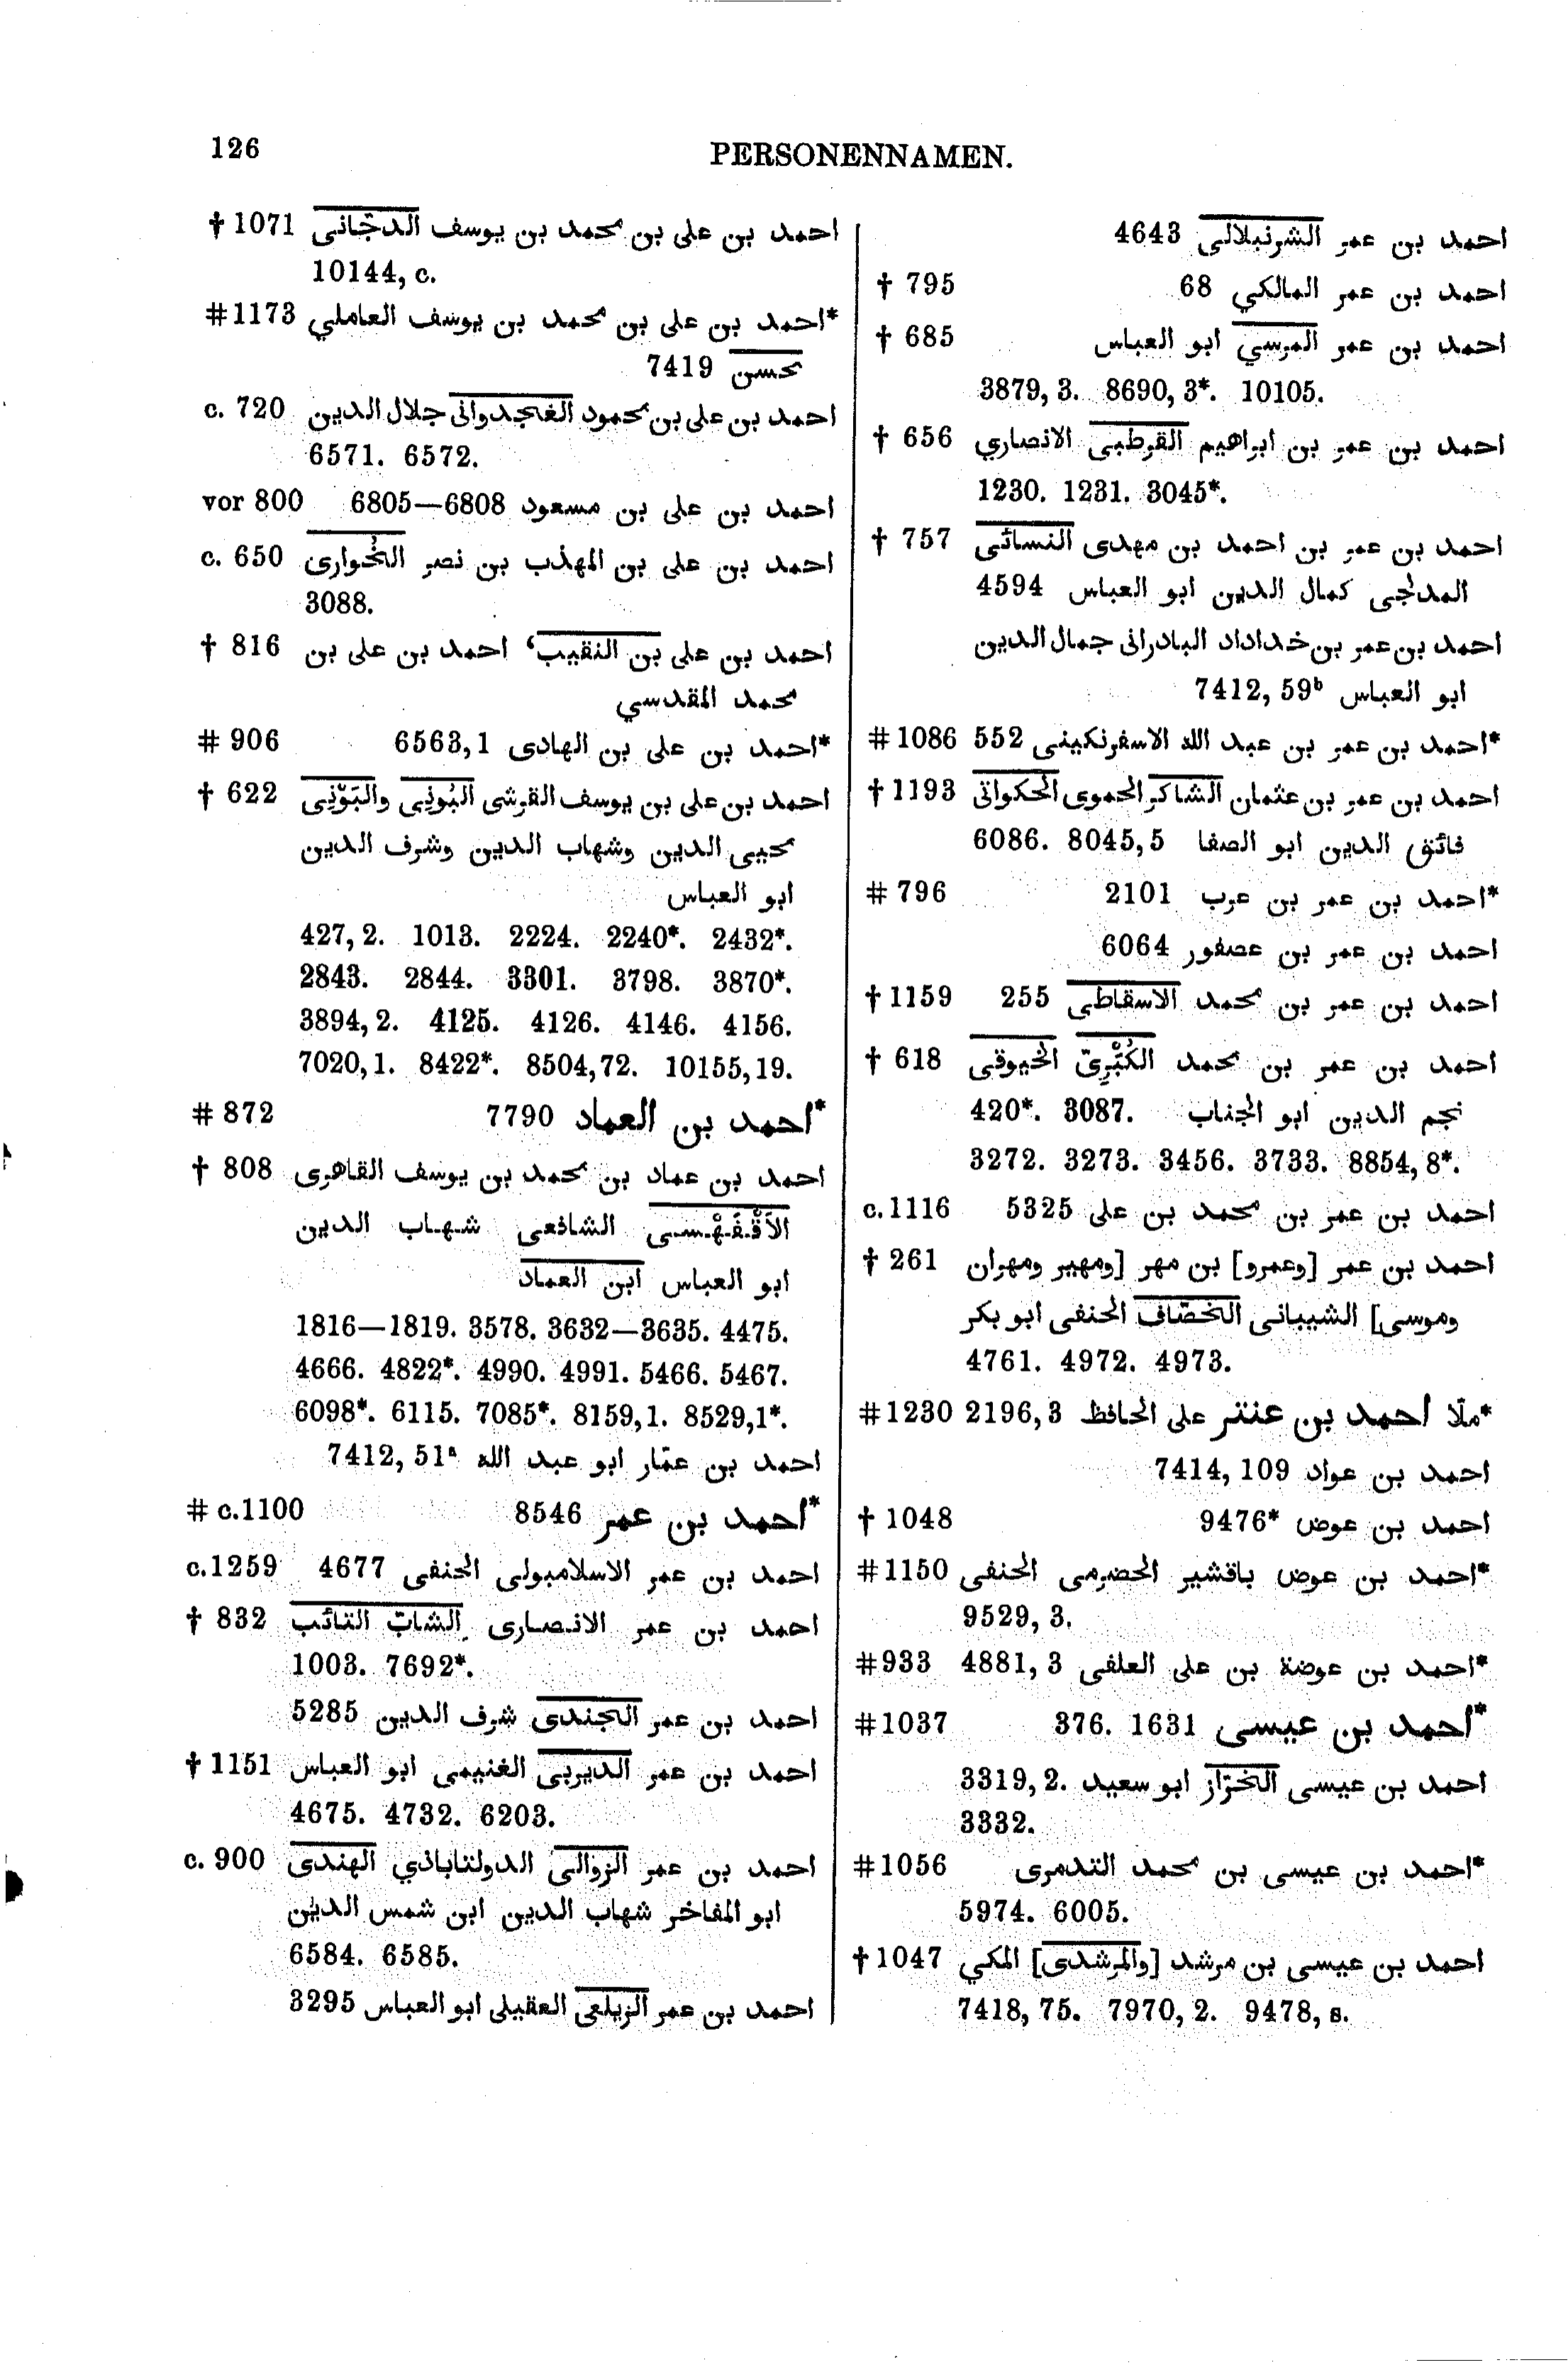 126
PERSONENNAMEN.
احمد بن على بن محمد بن يوسف الدجّانى † 1071
10144, c.
*احمد بن على بن محمد بن يوسف العاملي # 1173
محسن 7419
احمد بن على بن محمود الغجدوانى جلال الدين c. 720
6571. 6572.
احمد بن على بن مسعود 6805—6808 vor 800
احمد بن على بن المهذب بن نصر الخُوارى c. 650
3088.
احمد بن على بن النقيب، احمد بن على بن † 816
محمد المقدسي
*احمد بن على بن الهادى 6563,1 # 906
احمد بن على بن يوسف القرشى البُونِى والبَوْنِى † 622
محيى الدين وشهاب الدين وشرف الدين
ابو العباس
427, 2. 1013. 2224. 2240*. 2432*.
2843. 2844. 3301. 3798. 3870*.
3894, 2. 4125. 4126. 4146. 4156.
7020,1. 8422*. 8504,72. 10155,19.
*احمد بن العماد 7790 # 872
احمد بن عماد بن محمد بن يوسف القاهرى † 808
الأَقْفَهْسى الشافعى شهاب الدين
ابو العباس ابن العماد
1816—1819. 3578. 3632—3635. 4475.
4666. 4822*. 4990. 4991. 5466. 5467.
6098*. 6115. 7085*. 8159,1. 8529,1*.
احمد بن عمّار ابو عبد الله 7412, 51ᵃ
*احمد بن عمر 8546 # c.1100
احمد بن عمر الاسلامبولى الحنفى 4677 c.1259
احمد بن عمر الانصارى الشابّ التائب † 832
1003. 7692*.
احمد بن عمر الجندى شرف الدين 5285
احمد بن عمر الديربى الغنيمى ابو العباس † 1151
4675. 4732. 6203.
احمد بن عمر الزوالى الدولتاباذي الهندى c. 900
ابو المفاخر شهاب الدين ابن شمس الدين
6584. 6585.
احمد بن عمر الزيلعى العقيلى ابو العباس 3295
احمد بن عمر الشرنبلالى 4643
احمد بن عمر المالكي 68 † 795
احمد بن عمر المرسي ابو العباس † 685
3879, 3. 8690, 3*. 10105.
احمد بن عمر بن ابراهيم القرطبى الانصاري † 656
1230. 1231. 3045*.
احمد بن عمر بن احمد بن مهدى النسائى † 757
المدلجى كمال الدين ابو العباس 4594
احمد بن عمر بن خداداد البادرانى جمال الدين
ابو العباس 7412, 59ᵇ
*احمد بن عمر بن عبد الله الاسفرنكينى 552 # 1086
احمد بن عمر بن عثمان الشاكر الحموى الحكواتى † 1193
فائق الدين ابو الصفا 6086. 8045,5
*احمد بن عمر بن عرب 2101 # 796
احمد بن عمر بن عصفور 6064
احمد بن عمر بن محمد الاسقاطى 255 † 1159
احمد بن عمر بن محمد الكُبْرِىّ الخيوقى † 618
نجم الدين ابو الجناب 420*. 3087.
3272. 3273. 3456. 3733. 8854, 8*.
احمد بن عمر بن محمد بن على 5325 c.1116
احمد بن عمر [وعمرو] بن مهر [ومهير ومهران † 261
وموسى] الشيبانى الخصّاف الحنفى ابو بكر
4761. 4972. 4973.
*ملّا احمد بن عنتر على الحافظ 2196,3 # 1230
احمد بن عواد 7414, 109
احمد بن عوض 9476* † 1048
*احمد بن عوض باقشير الحضرمى الحنفى # 1150
9529, 3.
*احمد بن عوضة بن على العلفى 4881, 3 # 933
*احمد بن عيسى 376. 1631 # 1037
احمد بن عيسى الخرّاز ابو سعيد 3319, 2.
3332.
*احمد بن عيسى بن محمد التدمرى # 1056
5974. 6005.
احمد بن عيسى بن مرشد [والمرشدى] المكي † 1047
7418, 75. 7970, 2. 9478, s.